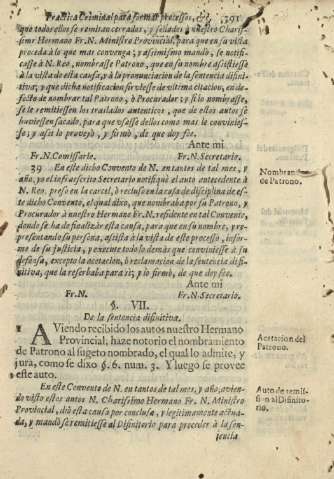 Practica Criminal para formar processos, &c. 391
que todos ellos se remitan cerrados, y sellados à nuestro Charis-
simo Hermano Fr. N. Ministro Provincial, para que en su vista
proceda à lo que mas convenga; y assimismo mandò, se notifi-
casse à N. Reo, nombrasse Patrono, que en su nombre assistiesse
à la vista de esta causa, y à la pronunciacion de la sentencia difini-
tiva; y que dicha notificacion sirviesse de vltima citacion, en de-
fecto de nombrar tal Patrono, ò Procurador y si lo nombrasse,
se le remitiessen los traslados autenticos, que de estos autos se
huviessen sacado, para que vsasse dellos como mas le convinies-
se; y assi lo proveyò, y firmò, de que doy fee.
Ante mi
Fr. N. Comissario. Fr. N. Secretario.
39 En este dicho Convento de N. en tantos de tal mes, y
año, yo el infrascrito Secretario notifiquè el auto antecedente à
N. Reo, preso en la carcel, ò recluso en la casa de disciplina de es-
te dicho Convento, el qual dixo, que nombraba por su Patrono, y
Procurador à nuestro Hermano Fr. N. residente en tal Convento,
donde se ha de finalizar esta causa, para que en su nombre, y re-
presentando su persona, assista à la vista de este processo, infor-
me de su justicia, y execute todo lo demàs que conviniesse à su
defensa, excepto la acetacion, ò reclamacion de la sentencia di-
finitiva, que la reservaba para sì; y lo firmò, de que doy fee.
Ante mi
Fr. N. Fr. N. Secretario.
Nombramiento
de Patrono.
§. VII.
De la sentencia difinitiva.
AViendo recibido los autos nuestro Hermano
Provincial, haze notorio el nombramiento
de Patrono al sugeto nombrado, el qual lo admite, y
jura, como se dixo §. 6. num. 3. Y luego se provee
este auto.
Acetacion del
Patrono.
En este Convento de N. en tantos de tal mes, y año, avien-
do visto estos autos N. Charissimo Hermano Fr. N. Ministro
Provincial, diò esta causa por conclusa, y legitimamente actua-
da, y mandò se remitiesse al Difinitorio para proceder à la sen-
tencia
Auto de remis-
sion al Difinito-
rio.